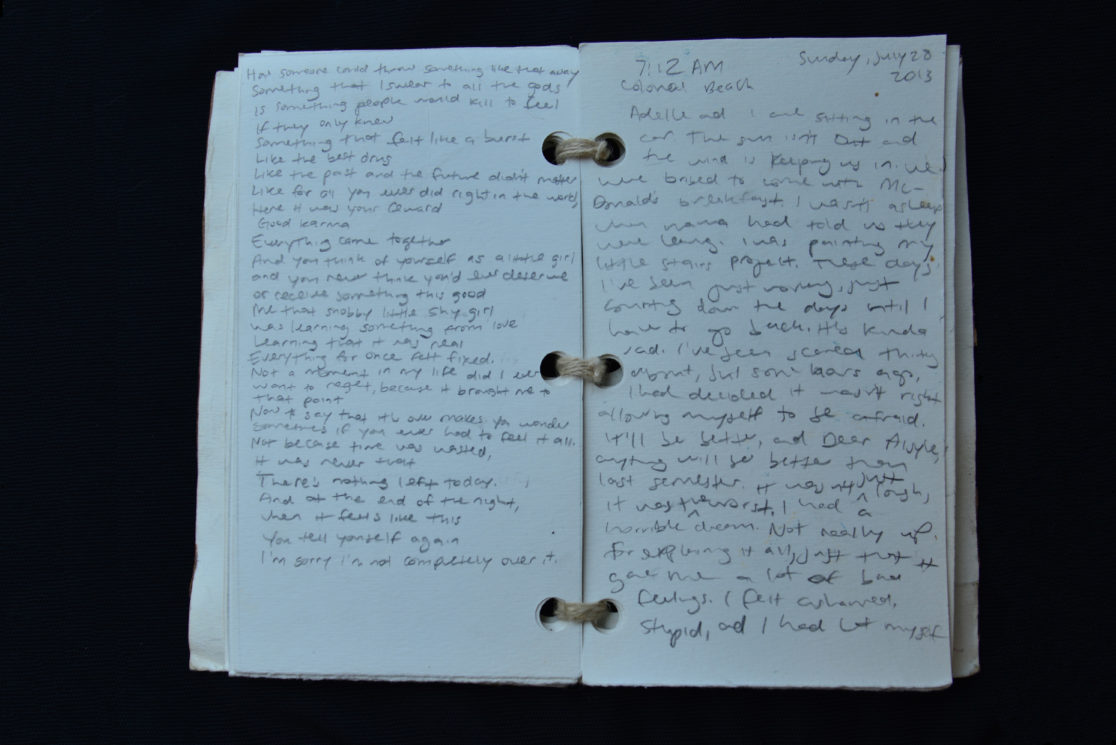 How someone could throw something like that away
Something that I swear to all the gods
is something people would kill to feel
if they only knew
Something that felt like a burst
Like the best drug
Like the past and the future didn't matter
Like for all you ever did right in the world,
Here it was your reward
Good karma
Everything came together
And you think of yourself as a little girl
and you never think you'd ever deserve
or receive something this good
that snobby little shy girl
was learning something from love
Learning that it was real
Everything for once felt fixed.
Not a moment in my life did I ever
want to regret, because it brought me to
that point
Now to say that it's over makes you wonder
Sometimes if you ever had to feel it all.
Not because time was wasted,
it was never that
There's nothing left today.
And at the end of the night,
when it feels like this
You tell yourself again
I'm sorry I'm not completely over it.
7:12 AM
Sunday, July 28
2013
Colonial Beach
Adelle and I are sitting in the
car. The sun isn't out and
the wind is keeping us in. We
were bribed to come with Mc-
Donald's breakfast. I wasn't asleep
when mama had told us they
were leaving. I was painting my
little stairs project. These days
I've been just working, just
counting down the days until I
have to go back. It's kinda
sad. I've been scared
about, but some hours ago,
I had decided it wasn't right
allowing myself to be afraid.
It'll be better, and Dear
anything will be better than
last semester. It was not just tough,
it was the worst. I had a
horrible dream. Not really up
for explaining it all, just that it
gave me a lot of bad
feelings. I felt ashamed,
stupid, and I had let myself